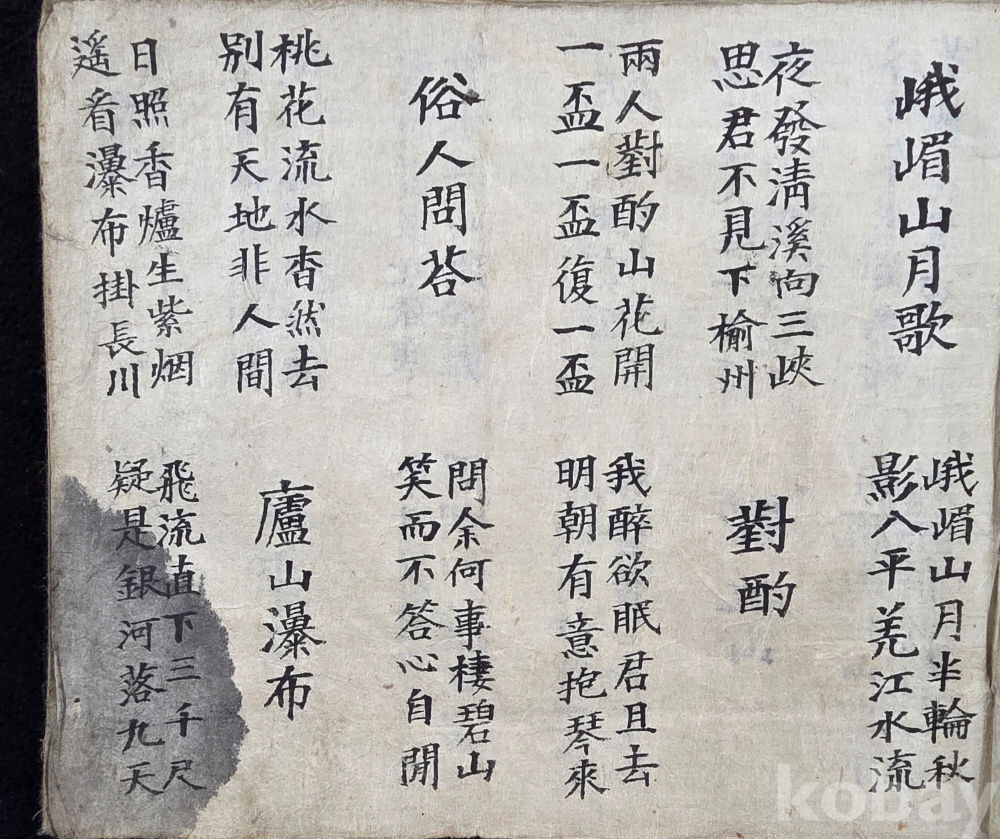 峨嵋山月歌
峨嵋山月半輪秋
影入平羌江水流
夜發淸溪向三峽
思君不見下楡州
對酌
兩人對酌山花開
一盃一盃復一盃
我醉欲眠君且去
明朝有意抱琴來
俗人問荅
問余何事棲碧山
笑而不答心自閒
桃花流水杳然去
别有天地非人間
廬山瀑布
日照香爐生紫烟
遙看瀑布掛長川
飛流直下三千尺
疑是銀河落九天
kobay